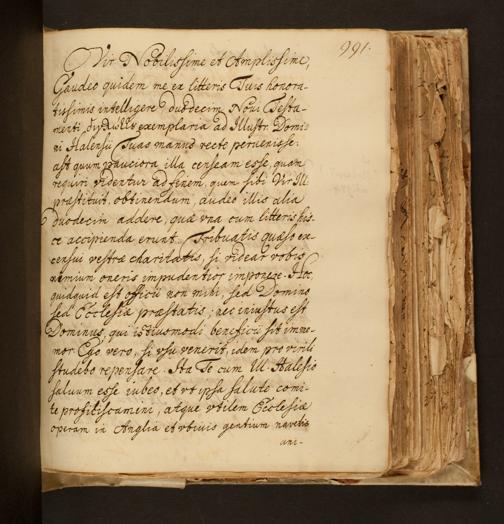 991.
Vir Nobilissime et Amplissime,
Gaudeo quidem me ex litteris Tuis honora-
tissimis intelligere duodecim Novi Testa-
menti exemplaria ad Illustr. Domi-
ni Halensii Tuas manus recte pervenisse:
ast quum pauciora illa censeam esse, quam
requiri videntur ad finem, quem sibi Vir Ill.
præstituit, obtinendum, audeo illis alia
duodecim addere, quæ vna cum litteris his-
ce accipienda erunt. Tribuatis quæso ex-
censui vestræ charitatis, si videar vobis
nimium oneris impudentior imponere. Hoc
quidquid est officii non mihi, sed Domino
sed Ecclesiæ præstatis; nec iniustus est
Dominus, qui istiusmodi beneficii sit imme-
mor. Ego vero, si vsu venerit, idem pro virili
studebo repensare. Ita Te cum Ill. Halesio
saluum esse iubeo, et vt ipsa salute comi-
te proficiscamini, atque vtilem Ecclesiæ
operam in Anglia et vbivis gentium navetis
uni-